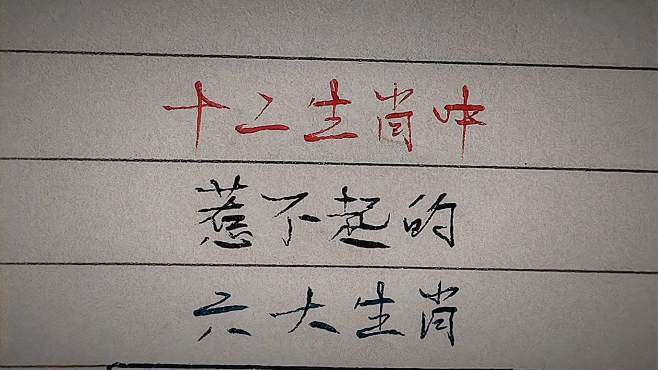 十二生肖中
惹不起的
六大生肖